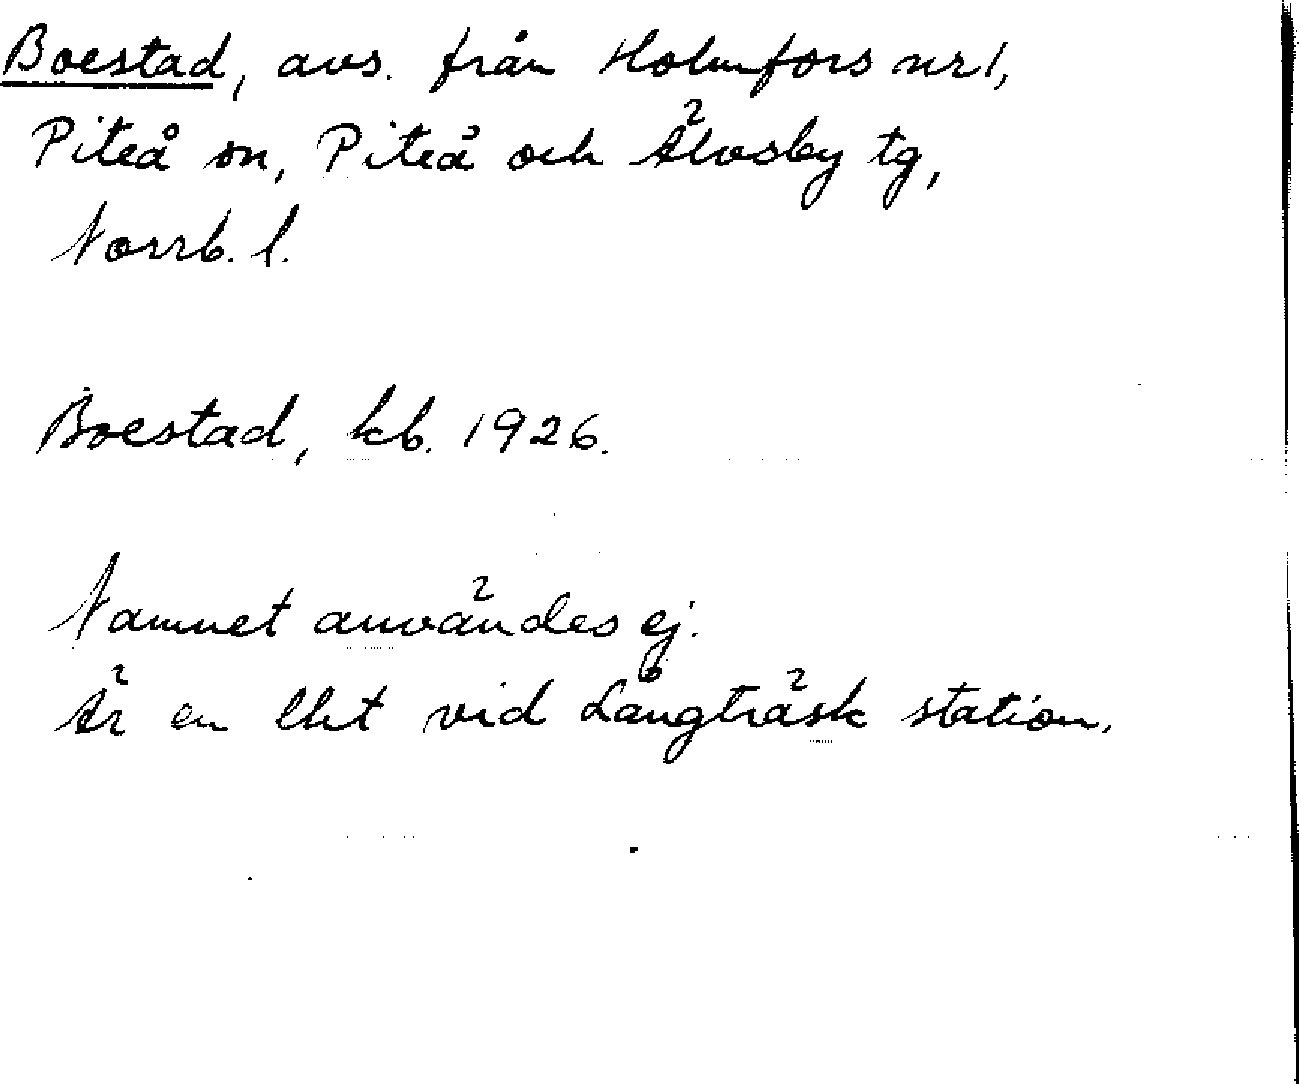 Boestad, avs. från Holmfors nr 1,
Piteå sn, Piteå och Älvsby tg,
Norrb. l.
Boestad, kb. 1926.
Namnet användes ej.
Är en lht vid Långträsk station.